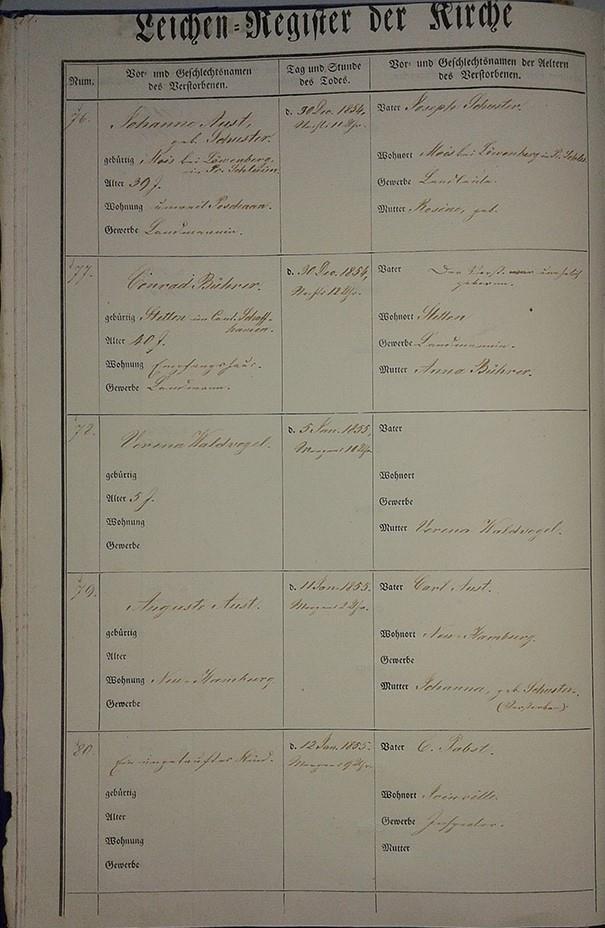 Leichen=Register der Kirche
Num.
Vor= und Geschlechtsnamen
des Verstorbenen.
Tag und Stunde
des Todes.
Vor= und Geschlechtsnamen der Aeltern
des Verstorbenen.
76.
Johanne Aust,
geb. Schuster.
gebürtig Mois bei Löwenberg
in Pr. Schlesien
Alter 39 J.
Wohnung unweit
Gewerbe Landmannin.
d. 30 Dec. 1854,
Nachts 11 Uhr.
Vater Joseph Schuster.
Wohnort Mois bei Löwenberg in Pr. Schles.
Gewerbe Landleute.
Mutter Rosine, geb.
77.
Conrad Bührer.
gebürtig Stetten im Cant. Schaff-
hausen.
Alter 40 J.
Wohnung Empfangshaus.
Gewerbe Landmann.
d. 30 Dec. 1854,
Nachts 12 Uhr.
Vater Der Verst. war unehelich
geboren.
Wohnort Stetten
Gewerbe Landmannin.
Mutter Anna Bührer.
78.
Verena Waldvogel.
gebürtig
Alter 5 J.
Wohnung
Gewerbe
d. 5 Jan. 1855,
Morgens 10 Uhr.
Vater
Wohnort
Gewerbe
Mutter Verena Waldvogel.
79.
Auguste Aust.
gebürtig
Alter
Wohnung Neu-Hamburg
Gewerbe
d. 11 Jan. 1855.
Morgens 2 Uhr.
Vater Carl Aust.
Wohnort Neu-Hamburg.
Gewerbe
Mutter Johanna, geb. Schuster.
(Verstorben)
80.
Ein ungetauftes Kind.
gebürtig
Alter
Wohnung
Gewerbe
d. 12 Jan. 1855.
Morgens 9 Uhr.
Vater C. Pabst.
Wohnort Joinville.
Gewerbe Inspector.
Mutter